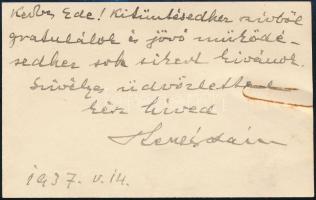 Kedves Ede! Kitüntésedhez szívből
gratulálok és jövő müködé-
sedhez sok sikert kivánok.
Szivélyes üdvözlettel
kész hived
1937. V. 14.